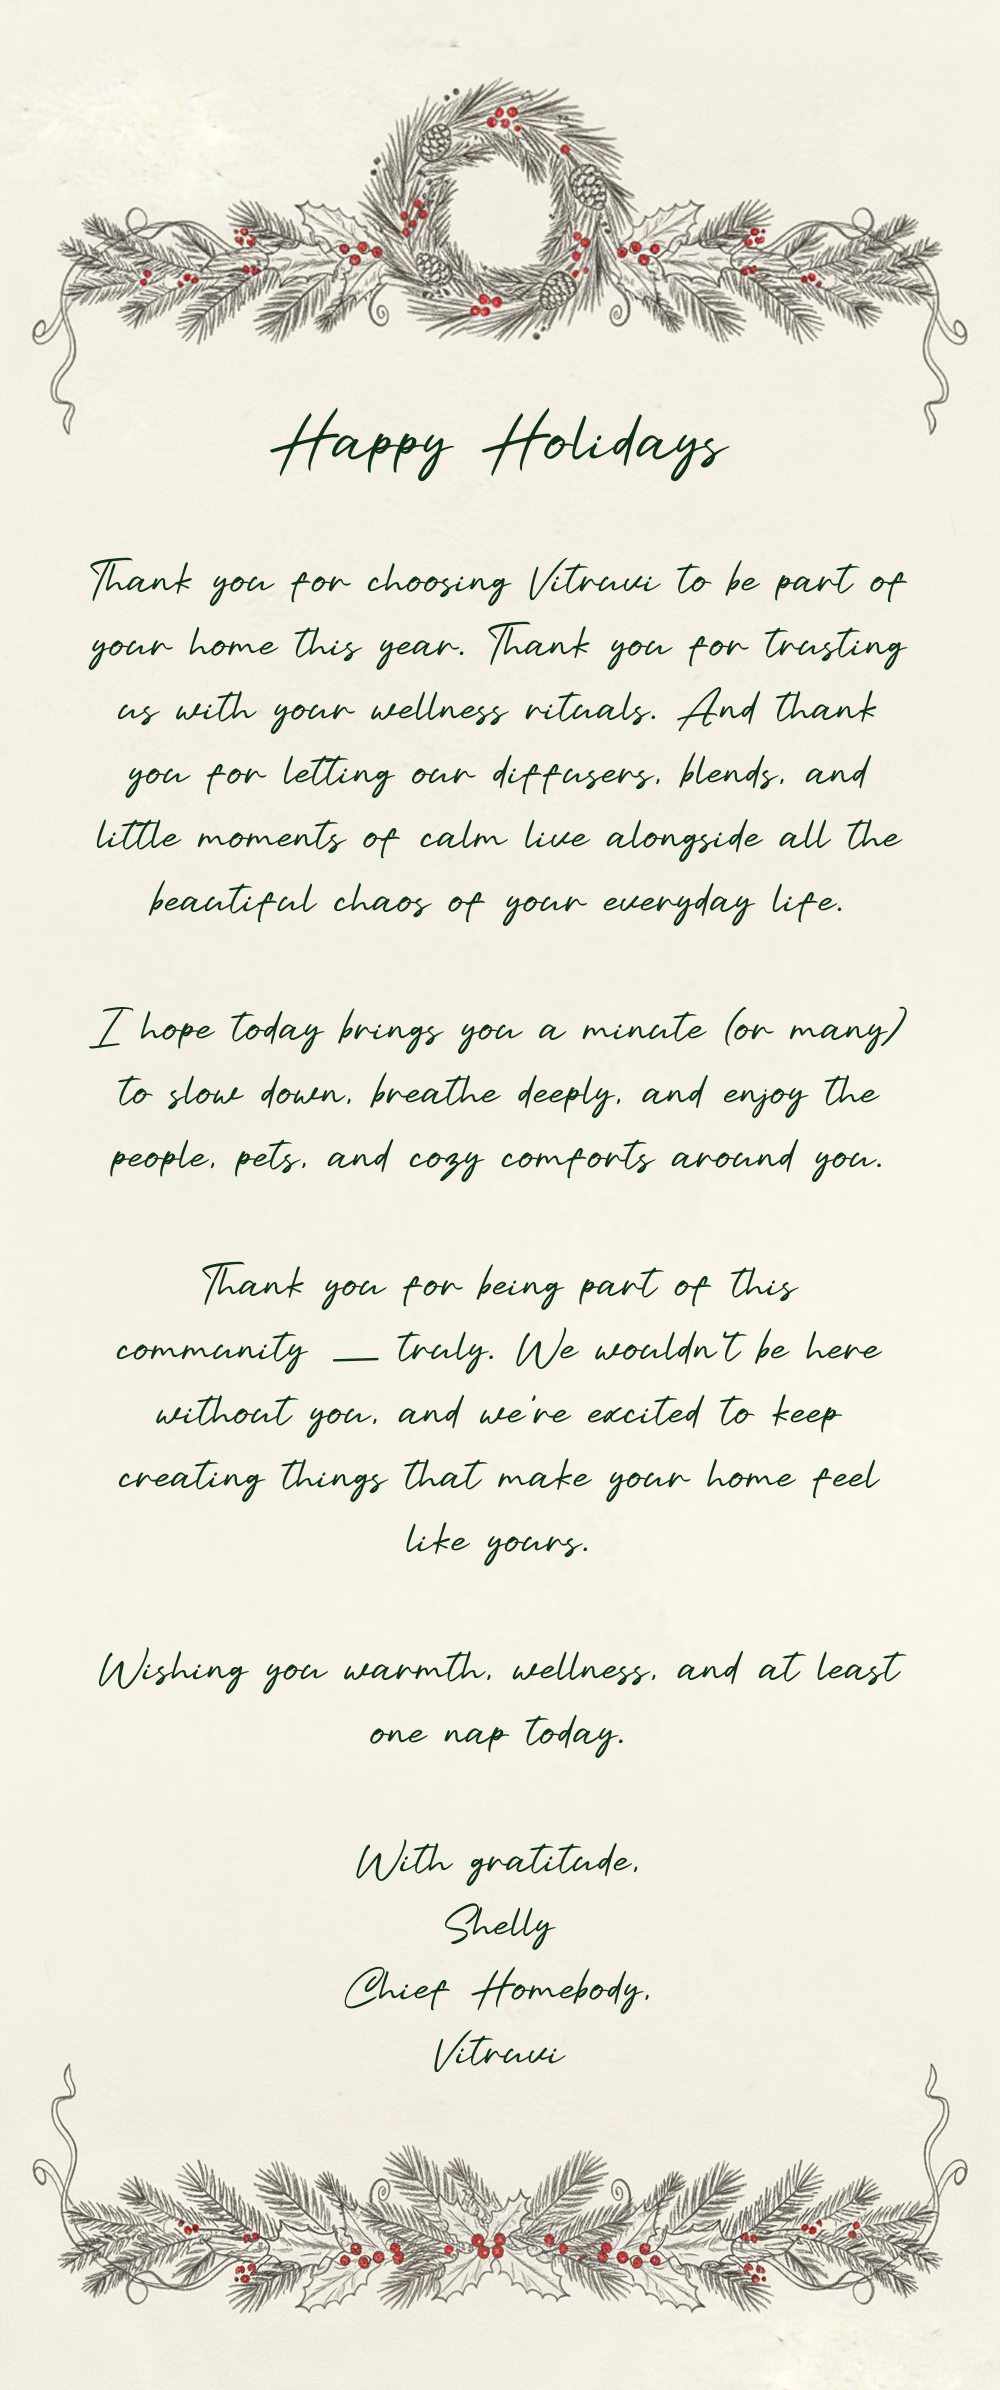 Happy Holidays
Thank you for choosing Vitruvi to be part of
your home this year. Thank you for trusting
us with your wellness rituals. And thank
you for letting our diffusers, blends, and
little moments of calm live alongside all the
beautiful chaos of your everyday life.
I hope today brings you a minute (or many)
to slow down, breathe deeply, and enjoy the
people, pets, and cozy comforts around you.
Thank you for being part of this
community — truly. We wouldn't be here
without you, and we're excited to keep
creating things that make your home feel
like yours.
Wishing you warmth, wellness, and at least
one nap today.
With gratitude,
Shelly
Chief Homebody,
Vitruvi